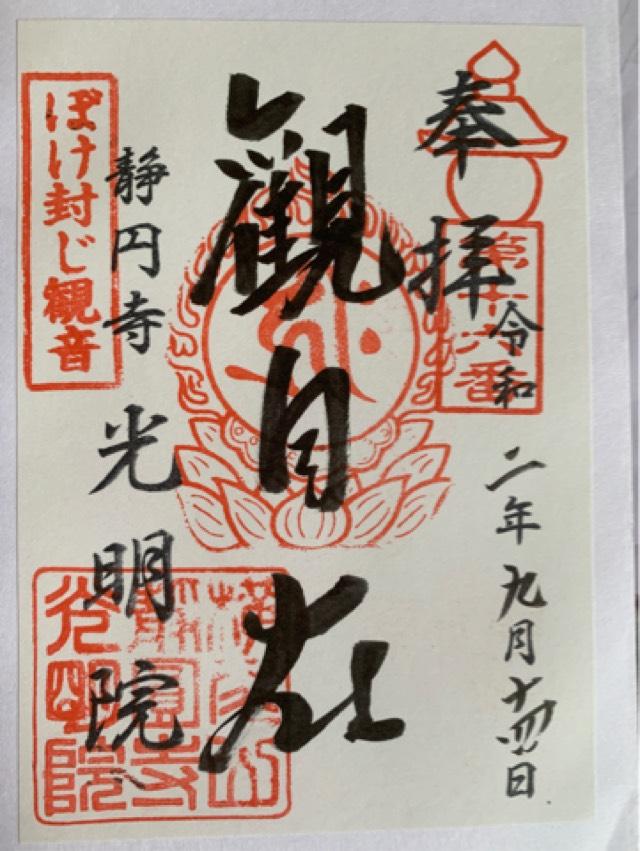 奉拝
第十六番
令和二年九月十四日
觀自在
静円寺 光明院
ぼけ封じ観音